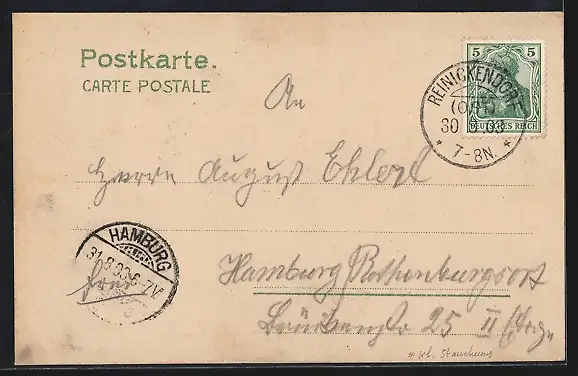 Postkarte.
CARTE POSTALE
5 5
DEUTSCHES REICH
REINICKENDORF
(OST)
30 03
* 7-8N. *
An
Herrn August Ehlers
HAMBURG
31.8.03.6-7V.
frei
Hamburg Rothenburgsort
25 II Etag.
* Stauchung